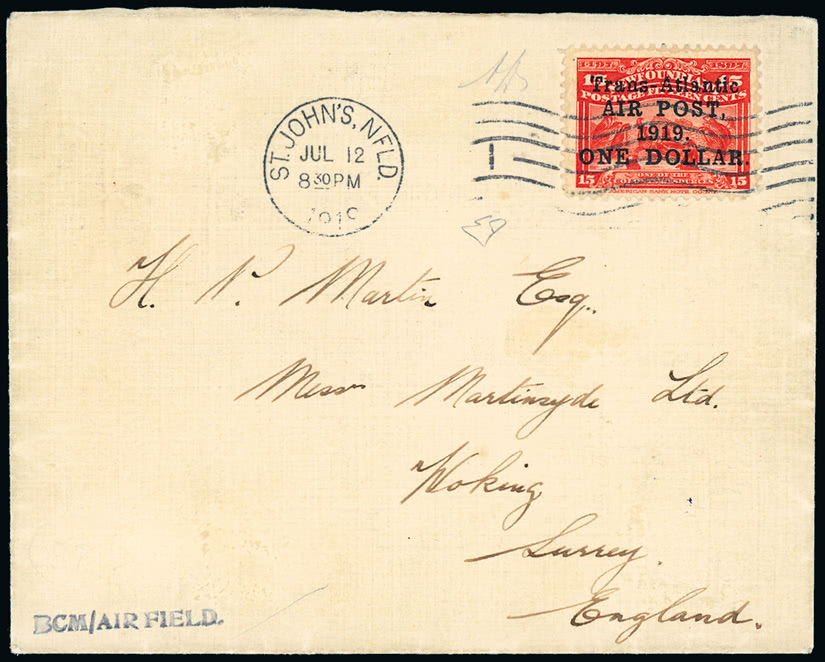 1897 1897
15 NEWFOUNDLAND 15
POSTAGE FIFTEEN CENTS
Trans-Atlantic
AIR POST,
1919.
ONE DOLLAR.
15 ONE OF THE 15
AMERICAN BANK NOTE CO.
ST. JOHN'S, NFLD.
JUL 12
8 30 PM
1919
H. P. Martin Esq.
Messrs Martinsyde Ltd.
Woking
Surrey.
England.
BCM/AIRFIELD.